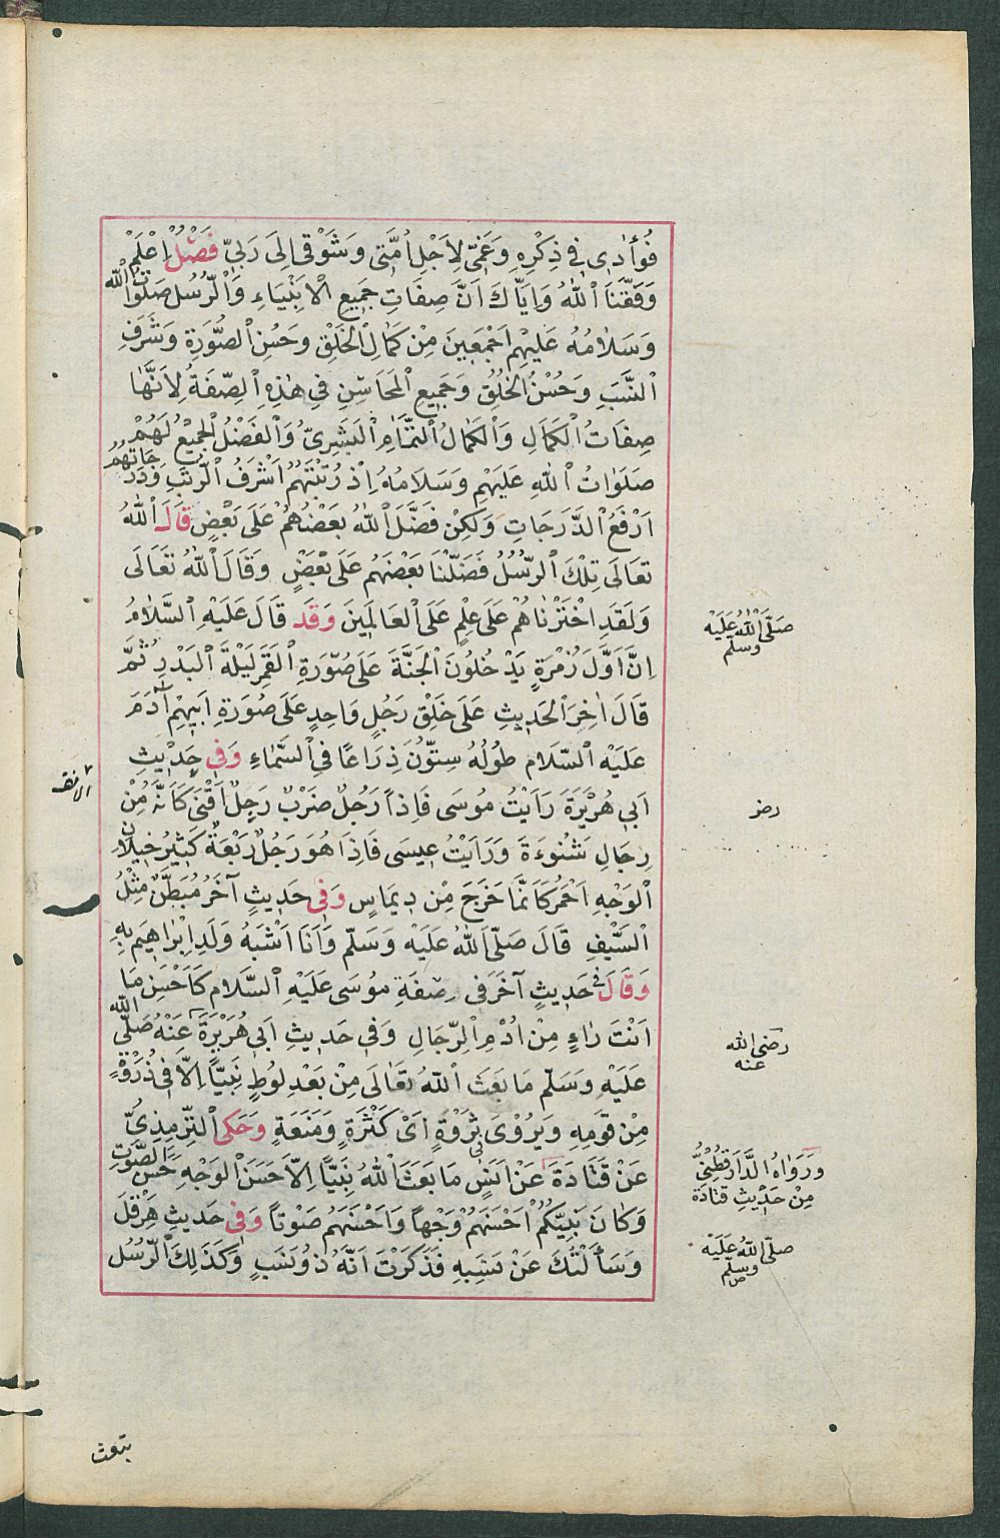 فُؤَادِى فِى ذِكْرِهِ وَغَمِّى لِاَجْلِ اُمَّتِى وَشَوْقِى اِلَى رَبِّىّ فَصْلٌ اِعْلَمْ
وَفَّقَنَا اللهُ وَاِيَّاكَ اَنَّ صِفَاتِ جَمِيعِ الْاَنْبِيَاءِ وَالرُّسُلِ صَلَوَاتُ اللهِ
وَسَلَامُهُ عَلَيْهِمْ اَجْمَعِينَ مِنْ كَمَالِ الْخَلْقِ وَحُسْنِ الصُّورَةِ وَشَرَفِ
النَّسَبِ وَحُسْنُ الْخُلُقِ وَجَمِيعِ الْمَحَاسِنِ فِى هٰذِهِ الصِّفَةُ لِاَنَّهَا
صِفَاتُ الْكَمَالِ وَالْكَمَالُ التَّمَامُ الْبَشَرِىُّ وَالْفَضْلُ الْجَمِيعُ لَهُمْ
صَلَوَاتُ اللهِ عَلَيْهِمِ وَسَلَامُهُ اِذْ رُتْبَتُهُمْ اَشْرَفُ الرُّتَبِ وَدَرَجَاتُهُمْ
اَرْفَعُ الدَّرَجَاتِ وَلَكِنْ فَضَّلَ اللهُ بَعْضَهُمْ عَلَى بَعْضٍ قَالَ اللهُ
تَعَالَى تِلْكَ الرُّسُلُ فَضَّلْنَا بَعْضَهُمْ عَلَى بَعْضٍ وَقَالَ اللهُ تَعَالَى
وَلَقَدِ اخْتَرْنَاهُمْ عَلَى عِلْمٍ عَلَى الْعَالَمِينَ وَقَدْ قَالَ عَلَيْهِ السَّلَامُ
صَلَّى اللهُ عَلَيْهِ وسلّم
اِنَّ اَوَّلَ زُمْرَةٍ يَدْخُلُونَ الْجَنَّةَ عَلَى صُورَةِ الْقَمَرِ لَيْلَةَ الْبَدْرِ ثُمَّ
قَالَ اٰخِرَ الْحَدِيثِ عَلَى خَلْقِ رَجُلٍ وَاحِدٍ عَلَى صُورَةِ اَبِيهِمْ آدَمَ
عَلَيْهِ السَّلَام طُولُهُ سِتُّونَ ذِرَاعًا فِى السَّمَاءِ وَفِى حَدِيثِ
اَبِى هُرَيْرَةَ رَاَيْتُ مُوسَى فَاِذَا رَجُلٌ ضَرْبٌ رَجِلٌ اَقْنَى كَاَنَّهُ مِنْ
رضر
الانف
رِجَالِ شَنُوءَةَ وَرَاَيْتُ عِيسَى فَاِذَا هُوَ رَجُلٌ رَبْعَةٌ كَثِيرُ خِيلَانِ
الْوَجْهِ اَحْمَرُ كَاَنَّمَا خَرَجَ مِنْ دِيمَاسٍ وَفِى حَدِيثٍ آخَرَ مُبَطَّنٌ مِثْلُ
السَّيْفِ قَالَ صَلَّى اللهُ عَلَيْهِ وَسَلَّمْ وَاَنَا اَشْبَهُ وَلَدِ اِبْرَاهِيمَ بِهِ
وَقَالَ فى حَدِيثٍ آخَرَ فِى صِفَةِ مُوسَى عَلَيْهِ السَّلَام كَاَحْسَنِ مَا
اَنْتَ رَاءٍ مِنْ اُدْمِ الرِّجَالِ وَفِى حَدِيثِ اَبِى هُرَيْرَةَ عَنْهُ صَلَّى الله
رضى الله عنه
عَلَيْهِ وَسَلَّم مَا بَعَثَ اللهُ تَعَالَى مِنْ بَعْدِ لُوطٍ نَبِيًّا اِلَّا فِى ذُرْوَةٍ
مِنْ قَوْمِهِ وَيُرْوَى ثَرْوَةٍ اَىْ كَثْرَةٍ وَمَنَعَةٍ وَحَكَى التِّرْمِذِىُّ
عَنْ قَتَادَةَ عَنْ اَنَسٍ مَا بَعَثَ اللهُ نَبِيًّا اِلَّا حَسَنَ الْوَجْهِ حَسَنَ الصَّوْتِ
وَرَوَاهُ الدَّارَقُطْنِىُّ
مِنْ حَدِيثِ قَتَادَة
وَكَانَ نَبِيُّكُمْ اَحْسَنَهُمْ وَجْهًا وَاَحْسَنَهُمْ صَوْتًا وَفِى حَدِيثِ هِرَقْلَ
صلّى اللهُ عَلَيْهِ وسلّم
وَسَأَلْتُكَ عَنْ نَسَبِهِ فَذَكَرْتَ اَنَّهُ ذُو نَسَبٍ وَكَذَلِكَ الرُّسُل
تبعث